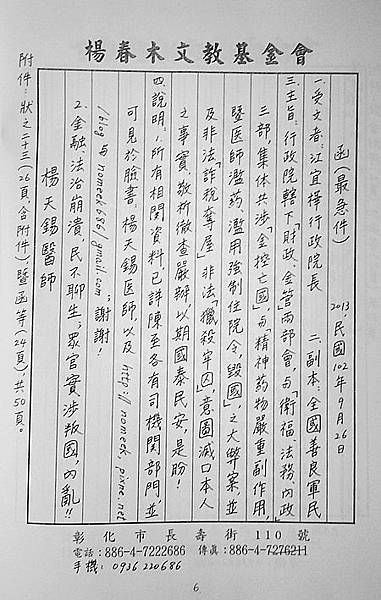 楊春木文教基金會
函（最急件）
2013
民國102年9月26日
一、受文者：江宜樺行政院長　二、副本：全國善良軍民
三、主旨：行政院轄下「財政、金管」兩部會，與「衛福、法務、內政」
三部，集体共涉「金控亡國」，與「精神药物嚴重副作用，
暨医師濫药濫用強制住院令，毀國」，之大弊案，並
及非法「詐稅奪屋」，非法「獵殺牢囚」，意圖滅口本人
之事實，敬祈徹查嚴辦以期國泰民安，是盼！
四、說明：1.所有相關資料，已詳陳至各有司機關部門，並
可見於臉書，楊天錫医師，以及 http://nomeek.pixne.net
/blog 与 nomeek686/gmail.com；謝謝！
2.金融、法治崩潰，民不聊生；眾官實涉叛國，內亂！！
楊天錫醫師
附件：狀之二十三（26頁，含附件），暨函等（24頁），共50頁。
彰化市長壽街110號
電話：886-4-7222686 傳真：886-4-7276211
手機：0936220686
6